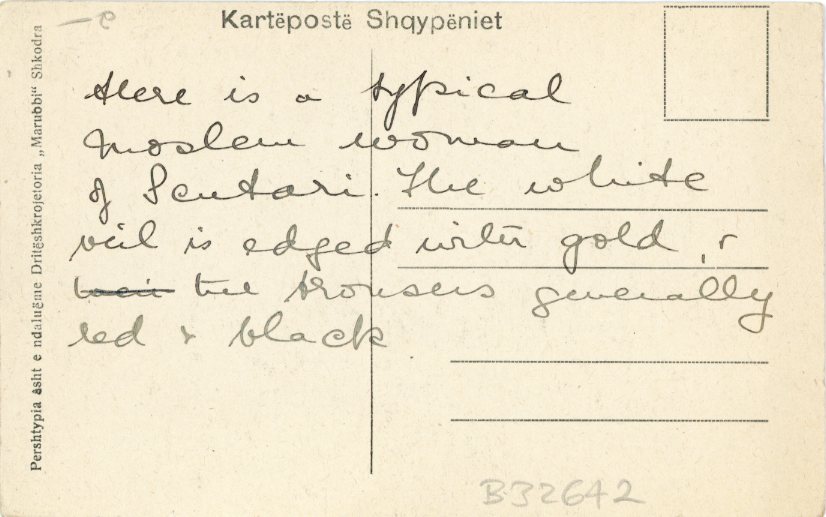 Kartëpostë Shqypëniet
Here is a typical
moslem woman
of Scutari. The white
veil is edged with gold, &
their the trousers generally
red & black
Pershtypia âsht e ndalugme Dritëshkrojetoria „Marubbi“ Shkodra
B32642